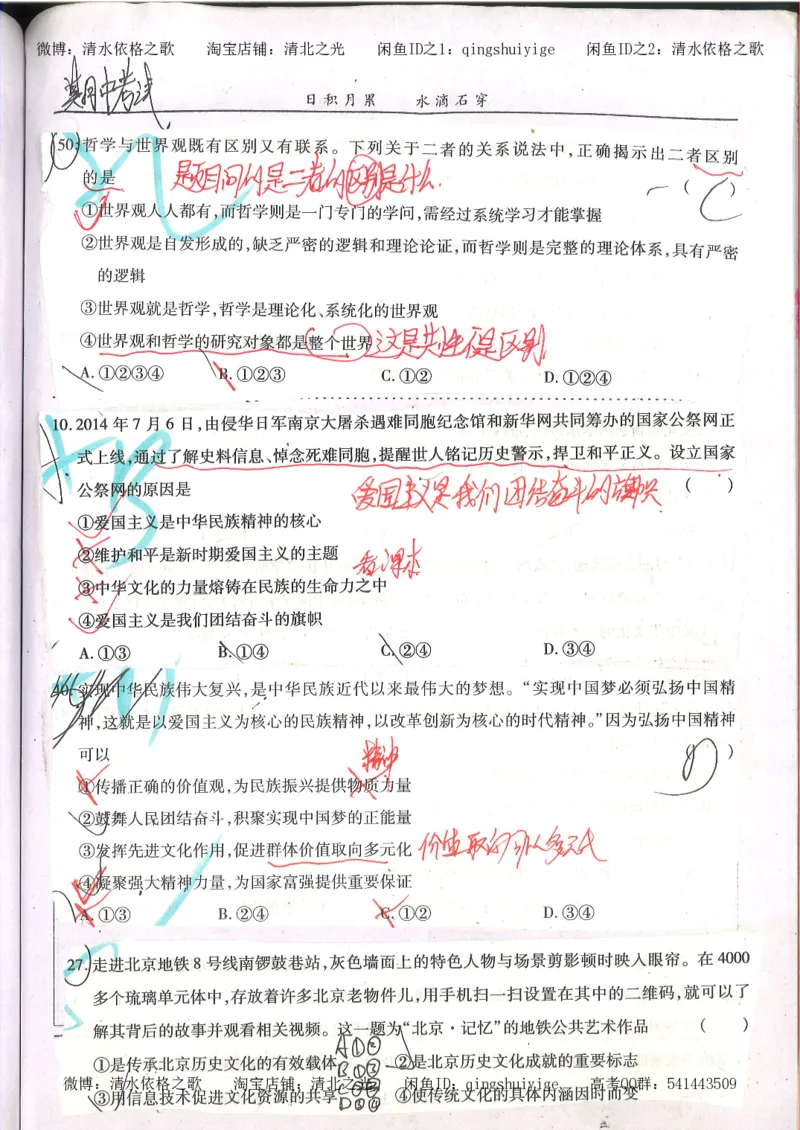 微博：清水依格之歌 淘宝店铺：清北之光 闲鱼ID之1：qingshuiyige 闲鱼ID之2：清水依格之歌
期中考试
日积月累 水滴石穿
50. 哲学与世界观既有区别又有联系。下列关于二者的关系说法中,正确揭示出二者区别
的是 题目问的是二者的区别是什么 ( C )
①世界观人人都有,而哲学则是一门专门的学问,需经过系统学习才能掌握
②世界观是自发形成的,缺乏严密的逻辑和理论论证,而哲学则是完整的理论体系,具有严密
的逻辑
③世界观就是哲学,哲学是理论化、系统化的世界观
④世界观和哲学的研究对象都是整个世界 这是共性不是区别
A. ①②③④ B. ①②③ C. ①② D. ①②④
10. 2014年7月6日,由侵华日军南京大屠杀遇难同胞纪念馆和新华网共同筹办的国家公祭网正
式上线,通过了解史料信息、悼念死难同胞,提醒世人铭记历史警示,捍卫和平正义。设立国家
公祭网的原因是 爱国主义是我们团结奋斗的旗帜 ( )
①爱国主义是中华民族精神的核心
②维护和平是新时期爱国主义的主题 看课本
③中华文化的力量熔铸在民族的生命力之中
④爱国主义是我们团结奋斗的旗帜
A. ①③ B. ①④ C. ②④ D. ③④
40. 实现中华民族伟大复兴,是中华民族近代以来最伟大的梦想。“实现中国梦必须弘扬中国精
神,这就是以爱国主义为核心的民族精神,以改革创新为核心的时代精神。”因为弘扬中国精神
可以 )
精神
①传播正确的价值观,为民族振兴提供物质力量
②鼓舞人民团结奋斗,积聚实现中国梦的正能量
③发挥先进文化作用,促进群体价值取向多元化 价值取向
④凝聚强大精神力量,为国家富强提供重要保证
A. ①③ B. ②④ C. ①② D. ③④
27. 走进北京地铁8号线南锣鼓巷站,灰色墙面上的特色人物与场景剪影顿时映入眼帘。在4000
多个琉璃单元体中,存放着许多北京老物件儿,用手机扫一扫设置在其中的二维码,就可以了
解其背后的故事并观看相关视频。这一题为“北京·记忆”的地铁公共艺术作品 ( )
①是传承北京历史文化的有效载体 ②是北京历史文化成就的重要标志
微博：清水依格之歌 淘宝店铺：清北之光 闲鱼ID：qingshuiyige 高考QQ群：541443509
③用信息技术促进文化资源的共享 ④使传统文化的具体内涵因时而变